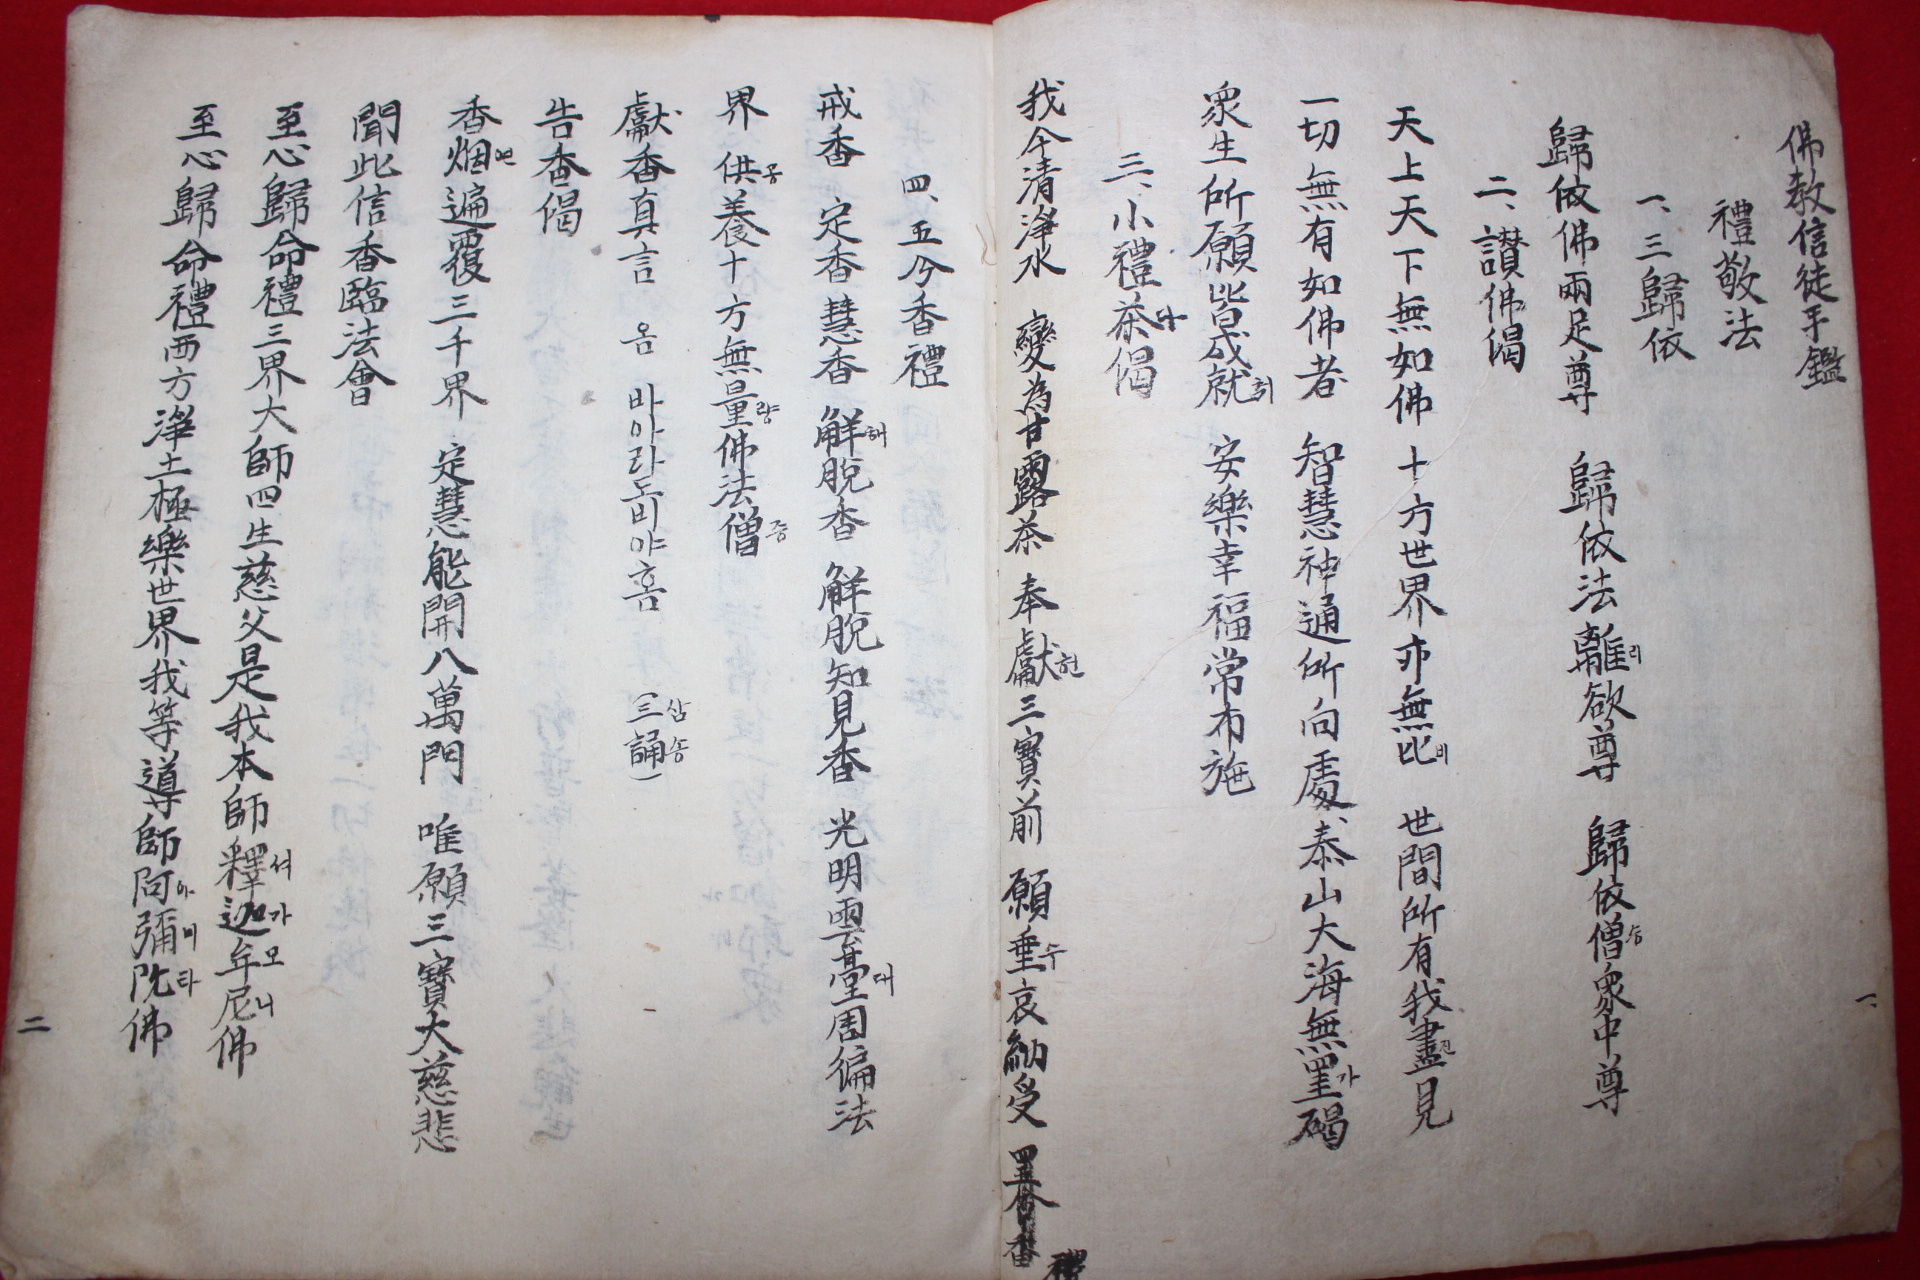 佛教信徒手鑑
禮敬法
一、三歸依
歸依佛兩足尊 歸依法離리欲尊 歸依僧승衆中尊
二、讃佛偈
天上天下無如佛 十方世界亦無比비 世間所有我盡진見
一切無有如佛者 智慧神通所向處 泰山大海無罣가碍
衆生所願皆成就취 安樂幸福常布施
三、小禮茶다偈
我今清淨水 變為甘露茶 奉獻헌三寶前 願垂수哀納受
一
四、五分香禮
戒香 定香 慧香 解해脫香 解脫知見香 光明雲臺대周偏法
界 供공養十方無量량佛法僧증
獻香真言 옴 바아라도비야홈 (三삼誦송)
告香偈
香烟연遍覆三千界 定慧能開八萬門 唯願三寶大慈悲
聞此信香臨法會
至心歸命禮三界大師四生慈父是我本師釋셔迦가牟모尼니佛
至心歸命禮西方淨土極樂世界我等導師阿아彌미陀타佛
二